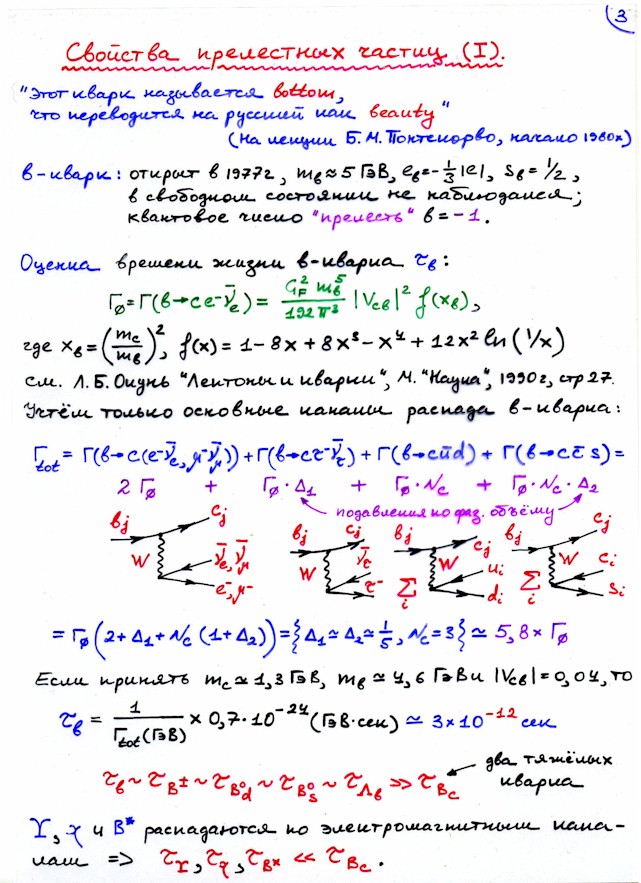 3
Свойства прелестных частиц (I).
"Этот кварк называется bottom,
что переводится на русский как beauty"
(На лекции Б.М. Понтекорво, начало 1980х)
b-кварк: открыт в 1977г, m_b ≃ 5 ГэВ, e_b = -1/3 |e|, s_b = 1/2,
в свободном состоянии не наблюдался;
квантовое число "прелесть" b = -1.
Оценка времени жизни b-кварка τ_b:
Γ_φ = Γ(b→c e⁻ ν̄_e) = G_F² m_b⁵ / 192 π³ |V_cb|² f(x_b),
где x_b = (m_c/m_b)², f(x) = 1 - 8x + 8x³ - x⁴ + 12x² ln(1/x)
см. Л.Б. Окунь "Лептоны и кварки", М. "Наука", 1990г, стр 27.
Учтём только основные каналы распада b-кварка:
Γ_tot = Γ(b→c(e⁻ν̄_e, μ⁻ν̄_μ)) + Γ(b→cτ⁻ν̄_τ) + Γ(b→cūd) + Γ(b→cc̄s) =
2Γ_φ + Γ_φ·Δ₁ + Γ_φ·N_c + Γ_φ·N_c·Δ₂
подавления по фаз. объёму
b_j c_j W ν̄_e, ν̄_μ e⁻, μ⁻
b_j c_j W ν̄_τ τ⁻
b_j c_j W Σ_i u_i d_i
b_j c_j W Σ_i c_i s_i
= Γ_φ (2 + Δ₁ + N_c (1 + Δ₂)) = {Δ₁ ≃ Δ₂ ≃ 1/5, N_c = 3} ≃ 5,8 × Γ_φ
Если принять m_c ≃ 1,3 ГэВ, m_b ≃ 4,6 ГэВ и |V_cb| = 0,04, то
τ_b = 1/Γ_tot(ГэВ) × 0,7·10⁻²⁴ (ГэВ·сек) ≃ 3×10⁻¹² сек
τ_b ~ τ_B± ~ τ_B⁰_d ~ τ_B⁰_s ~ τ_Λ_b ≫ τ_B_c
два тяжёлых
кварка
Υ, χ и B* распадаются по электромагнитным кана-
лам => τ_Υ, τ_χ, τ_B* ≪ τ_B_c.